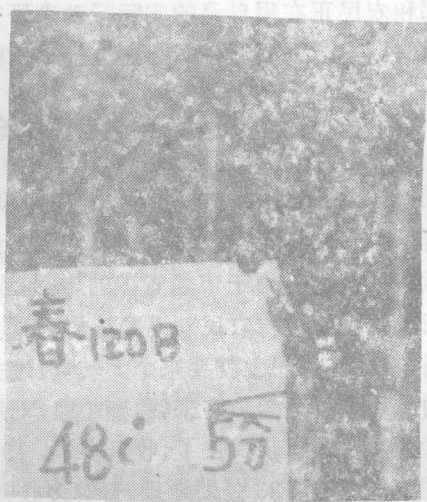 春120B
48i 5分